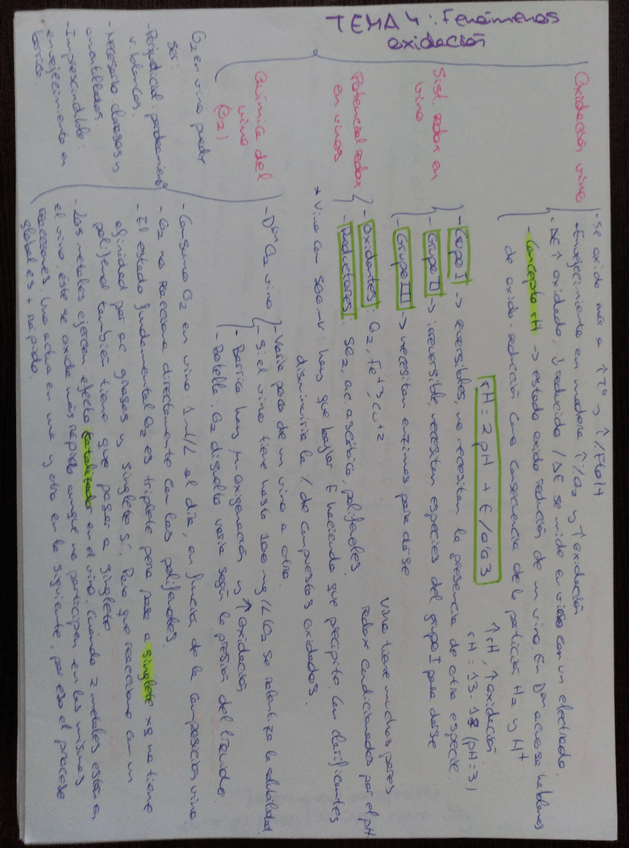 TEMA 4: Fenómenos
oxidación
Oxidación vino
- Se oxida más a ↑Tº y ↑%EtOH
- Envejecimiento en madera ↑%O2 y ↑oxidación
- ΔE ↑ oxidado, ↓ reducido / ΔE se mide en vino con un electrodo.
- Concepto rH → estado oxido reducción de un vino. En Dón acuosa hablamos
de oxido-reducción como consecuencia de la partición H2 y H+
rH = 2 pH + E/0'03
↑rH, ↑oxidación
rH = 13-18 (pH=3)
Sist. redox en
vino
- Grupo I → reversibles, no necesitan la presencia de otra especie.
- Grupo II → irreversible necesitan especies del grupo I para darse
- Grupo III → necesitan enzimas para darse
Potencial redox
en vinos
Oxidantes: O2, Fe+3, Cu+2
- Reductores: SO2, ac ascórbico, polifenoles.
Vino tiene muchos pares
redox condicionados por el pH
* Vino con 500 mV: hay que bajar E haciendo que precipite. Con clarificantes
disminuiría la % de compuestos oxidados.
Química del
vino
(O2)
- Dón O2 vino
- Varía para de un vino a otro.
- Si el vino tiene hasta 100 mg/L CO2 se ralentiza la solubilidad
- Barrica hay μ-oxigenación y ↑oxidación
- Botella: O2 disuelto varía según la presión del líquido.
O2 en vino puede
ser:
- Perjudicial: problemas
v. blancos.
- Necesario: claros y
amontillados
- Imprescindible:
envejecimiento en
barrica
- Consumo O2 en vino: 1 ml/L al día, en función de la composición vino.
- O2 no reacciona directamente con los polifenoles
- El estado fundamental O2 es triplete pero pasa a singlete xq no tiene
afinidad por ac. grasos y singlete sí. Para que reaccione con un
polifenol también tiene que pasar a singlete
- Los metales ejercen efecto catalizador en el vino. Cuando 2 metales están en
el vino éste se oxida más rápido aunque no participen en las mismas
reacciones. Uno actúa en una y otro en la siguiente, por eso el proceso
global es + rápido.